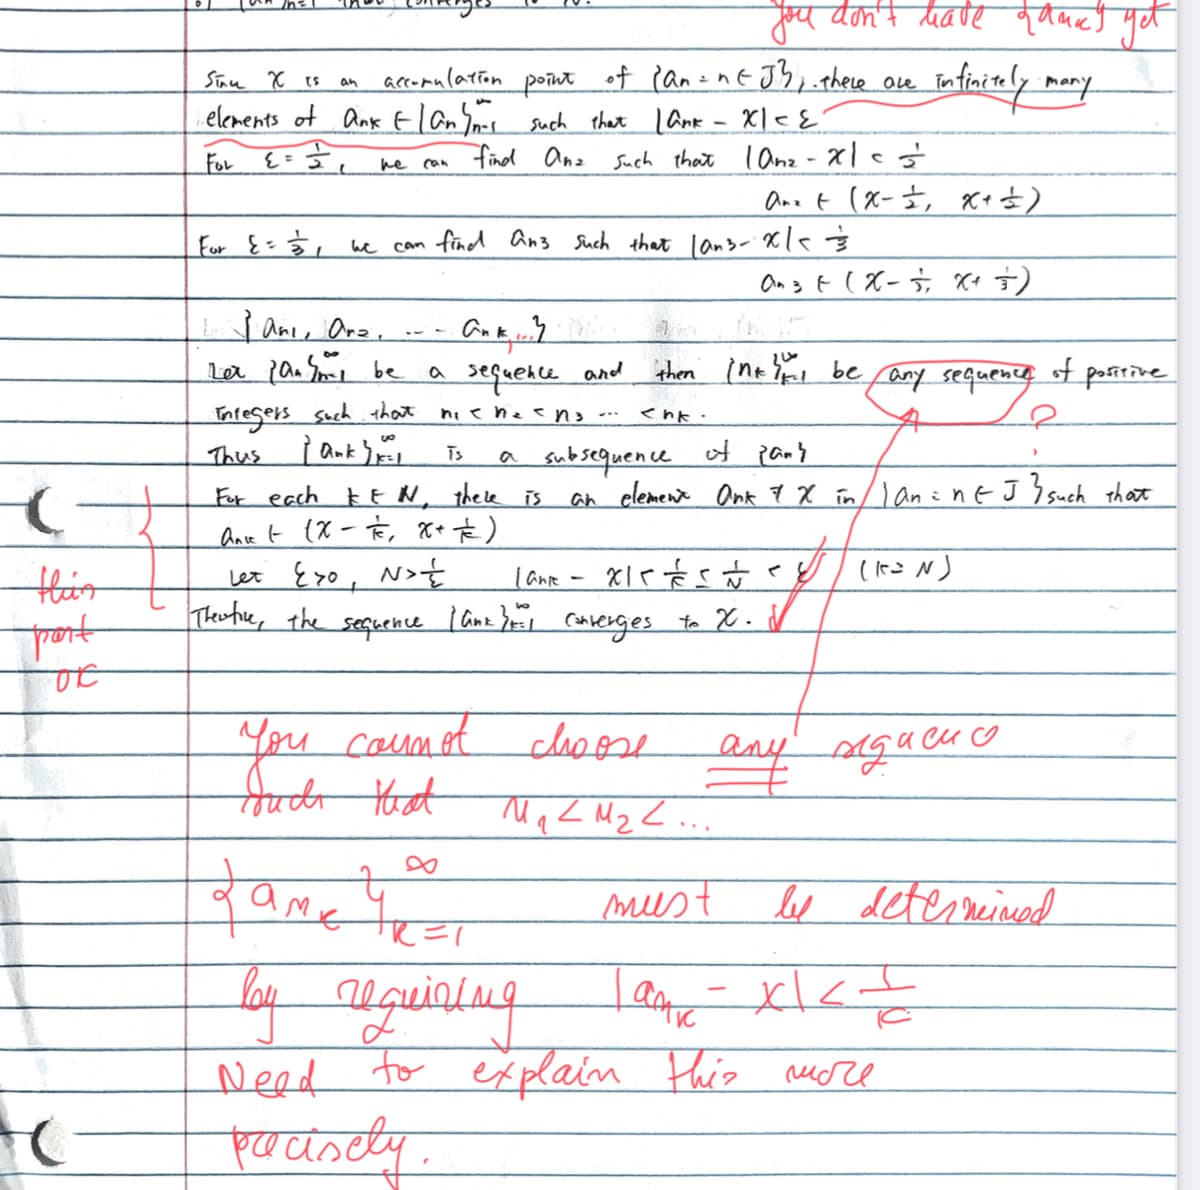 you don't have {ank} yet
Since x is an accumulation point of {an : n ∈ J}, there are infinitely many
elements of ank ∈ {an}∞n=1 such that |ank - x| < ε
For ε = 1/2, we can find an2 such that |an2 - x| < 1/2
an2 ∈ (x - 1/2, x + 1/2)
For ε = 1/3, we can find an3 such that |an3 - x| < 1/3
an3 ∈ (x - 1/3, x + 1/3)
{an1, an2, ... ank,...}
Let {an}∞n=1 be a sequence and then {nk}∞k=1 be any sequence of positive
integers such that n1 < n2 < n3 ... < nk.
?
Thus {ank}∞k=1 is a subsequence of {an}
For each k ∈ N, there is an element ank ≠ x in {an : n ∈ J} such that
ank ∈ (x - 1/k, x + 1/k)
Let ε>0, N > 1/ε |ank - x| < 1/k ≤ 1/N < ε (k ≥ N)
Therefore, the sequence {ank}∞k=1 converges to x.
this
part
OK
You cannot choose any sequence
such that n1 < n2 < ...
{ank}∞k=1 must be determined
by requiring |ank - x| < 1/k
Need to explain this more
precisely.